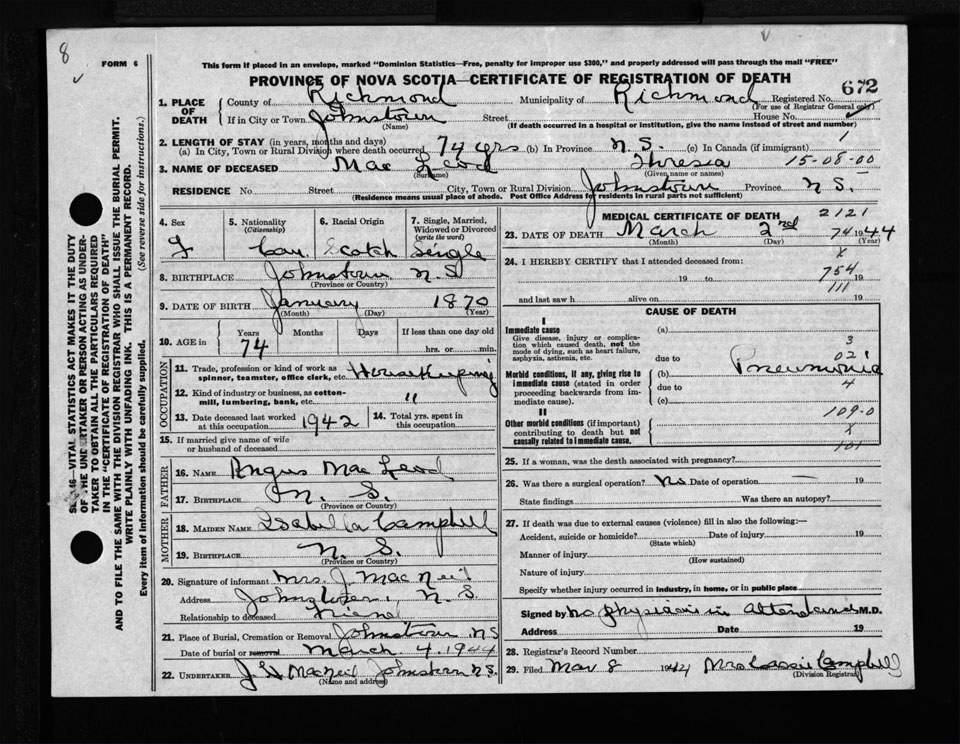 8
FORM 6
This form if placed in an envelope, marked "Dominion Statistics—Free, penalty for improper use $300," and properly addressed will pass through the mail "FREE"
PROVINCE OF NOVA SCOTIA—CERTIFICATE OF REGISTRATION OF DEATH
672
1. PLACE OF DEATH
County of Richmond Municipality of Richmond Registered No.
(For use of Registrar General only)
If in City or Town Johnstown Street House No.
(Name) (If death occurred in a hospital or institution, give the name instead of street and number)
2. LENGTH OF STAY (in years, months and days)
(a) In City, Town or Rural Division where death occurred 74 yrs (b) In Province N.S. (c) In Canada (if immigrant)
3. NAME OF DECEASED Mac Leod Theresia 15-08-00
(Surname) (Given name or names)
RESIDENCE No. Street City, Town or Rural Division Johnstown Province N S.
(Residence means usual place of abode. Post Office Address for residents in rural parts not sufficient)
4. Sex
F
5. Nationality (Citizenship)
Can
6. Racial Origin
Scotch
7. Single, Married, Widowed or Divorced (write the word)
Single
8. BIRTHPLACE Johnstown N S
(Province or Country)
9. DATE OF BIRTH January 1870
(Month) (Day) (Year)
10. AGE in
Years Months Days If less than one day old
74 hrs. or min.
OCCUPATION
11. Trade, profession or kind of work as spinner, teamster, office clerk, etc. Housekeeping
12. Kind of industry or business, as cotton-mill, lumbering, bank, etc. "
13. Date deceased last worked at this occupation 1942
14. Total yrs. spent in this occupation
15. If married give name of wife or husband of deceased
FATHER
16. NAME Angus Mac Leod
17. BIRTHPLACE N. S.
(Province or Country)
MOTHER
18. MAIDEN NAME Isabella Campbell
19. BIRTHPLACE N. S.
(Province or Country)
20. Signature of informant Mrs. J. Mac Neil
Address Johnstown, N. S.
Relationship to deceased Friend
21. Place of Burial, Cremation or Removal Johnstown NS
Date of burial or removal March 4, 1944
22. UNDERTAKER MacNeil Johnstown N.S.
(Name and address)
MEDICAL CERTIFICATE OF DEATH 2121
23. DATE OF DEATH March 2nd 74 1944
(Month) (Day) (Year)
24. I HEREBY CERTIFY that I attended deceased from: x
19 to 754 19
111
and last saw h alive on 19
CAUSE OF DEATH
I
Immediate cause
Give disease, injury or complication which caused death, not the mode of dying, such as heart failure, asphyxia, asthenia, etc.
(a)
3
due to 021
Morbid conditions, if any, giving rise to immediate cause (stated in order proceeding backwards from immediate cause).
(b) Pneumonia
due to 4
(c)
II
109-0
Other morbid conditions (if important) contributing to death but not causally related to immediate cause.
x
101
25. If a woman, was the death associated with pregnancy?
26. Was there a surgical operation? No Date of operation — 19
State findings Was there an autopsy?
27. If death was due to external causes (violence) fill in also the following:—
Accident, suicide or homicide? Date of injury 19
(State which)
Manner of injury
(How sustained)
Nature of injury
Specify whether injury occurred in industry, in home, or in public place
Signed by no physician in Attendance M.D.
Address Date 19
28. Registrar's Record Number
29. Filed Mar 8 1944 Mrs Cassie Campbell
(Division Registrar)
OF THE UNDERTAKER OR PERSON ACTING AS UNDERTAKER TO OBTAIN ALL THE PARTICULARS REQUIRED
IN THE "CERTIFICATE OF REGISTRATION OF DEATH"
AND TO FILE THE SAME WITH THE DIVISION REGISTRAR WHO SHALL ISSUE THE BURIAL PERMIT.
WRITE PLAINLY WITH UNFADING INK. THIS IS A PERMANENT RECORD.
Every item of information should be carefully supplied. (See reverse side for instructions.)